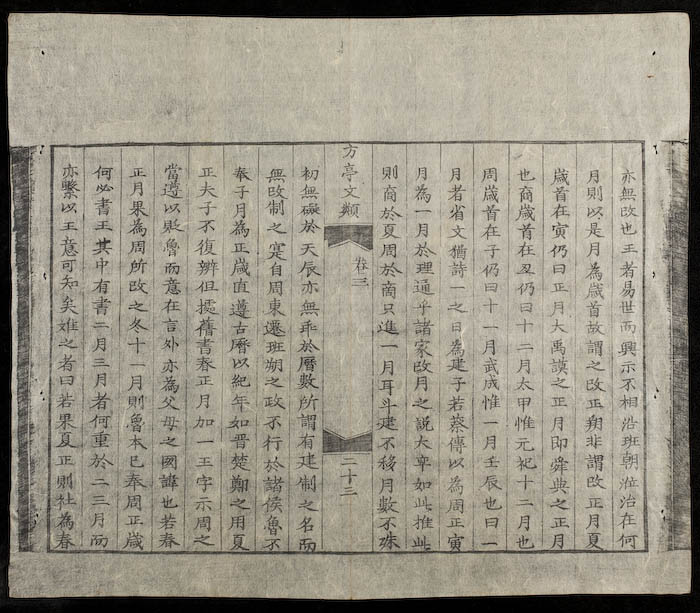 亦無改也王者易世而興示不相沿班朝涖治在何
月則以是月為歲首故謂之改正朔非謂改正月夏
歲首在寅仍曰正月大禹謨之正月即舜典之正月
也商歲首在丑仍曰十二月太甲惟元祀十二月也
周歲首在子仍曰十一月武成惟一月壬辰也曰一
月者省文猶詩一之日為建子若蔡傳以為周正寅
月為一月於理通乎諸家改月之説大率如此推此
則商於夏周於商只進一月耳斗建不移月數不殊
方亭文類
卷三
二十三
初無礙於天辰亦無乖於曆數所謂有建制之名而
無改制之寔自周東遷班朔之政不行於諸侯魯不
奉子月為正歲直遵古曆以紀年如晋楚鄭之用夏
正夫子不復辨但據舊書春正月加一王字示周之
當遵以貶魯而意在言外亦為父母之國諱也若春
正月果為周所改之冬十一月則魯本已奉周正歲
何必書王其中有書二月三月者何重於二三月而
亦繫以王意可知矣難之者曰若果夏正則社為春